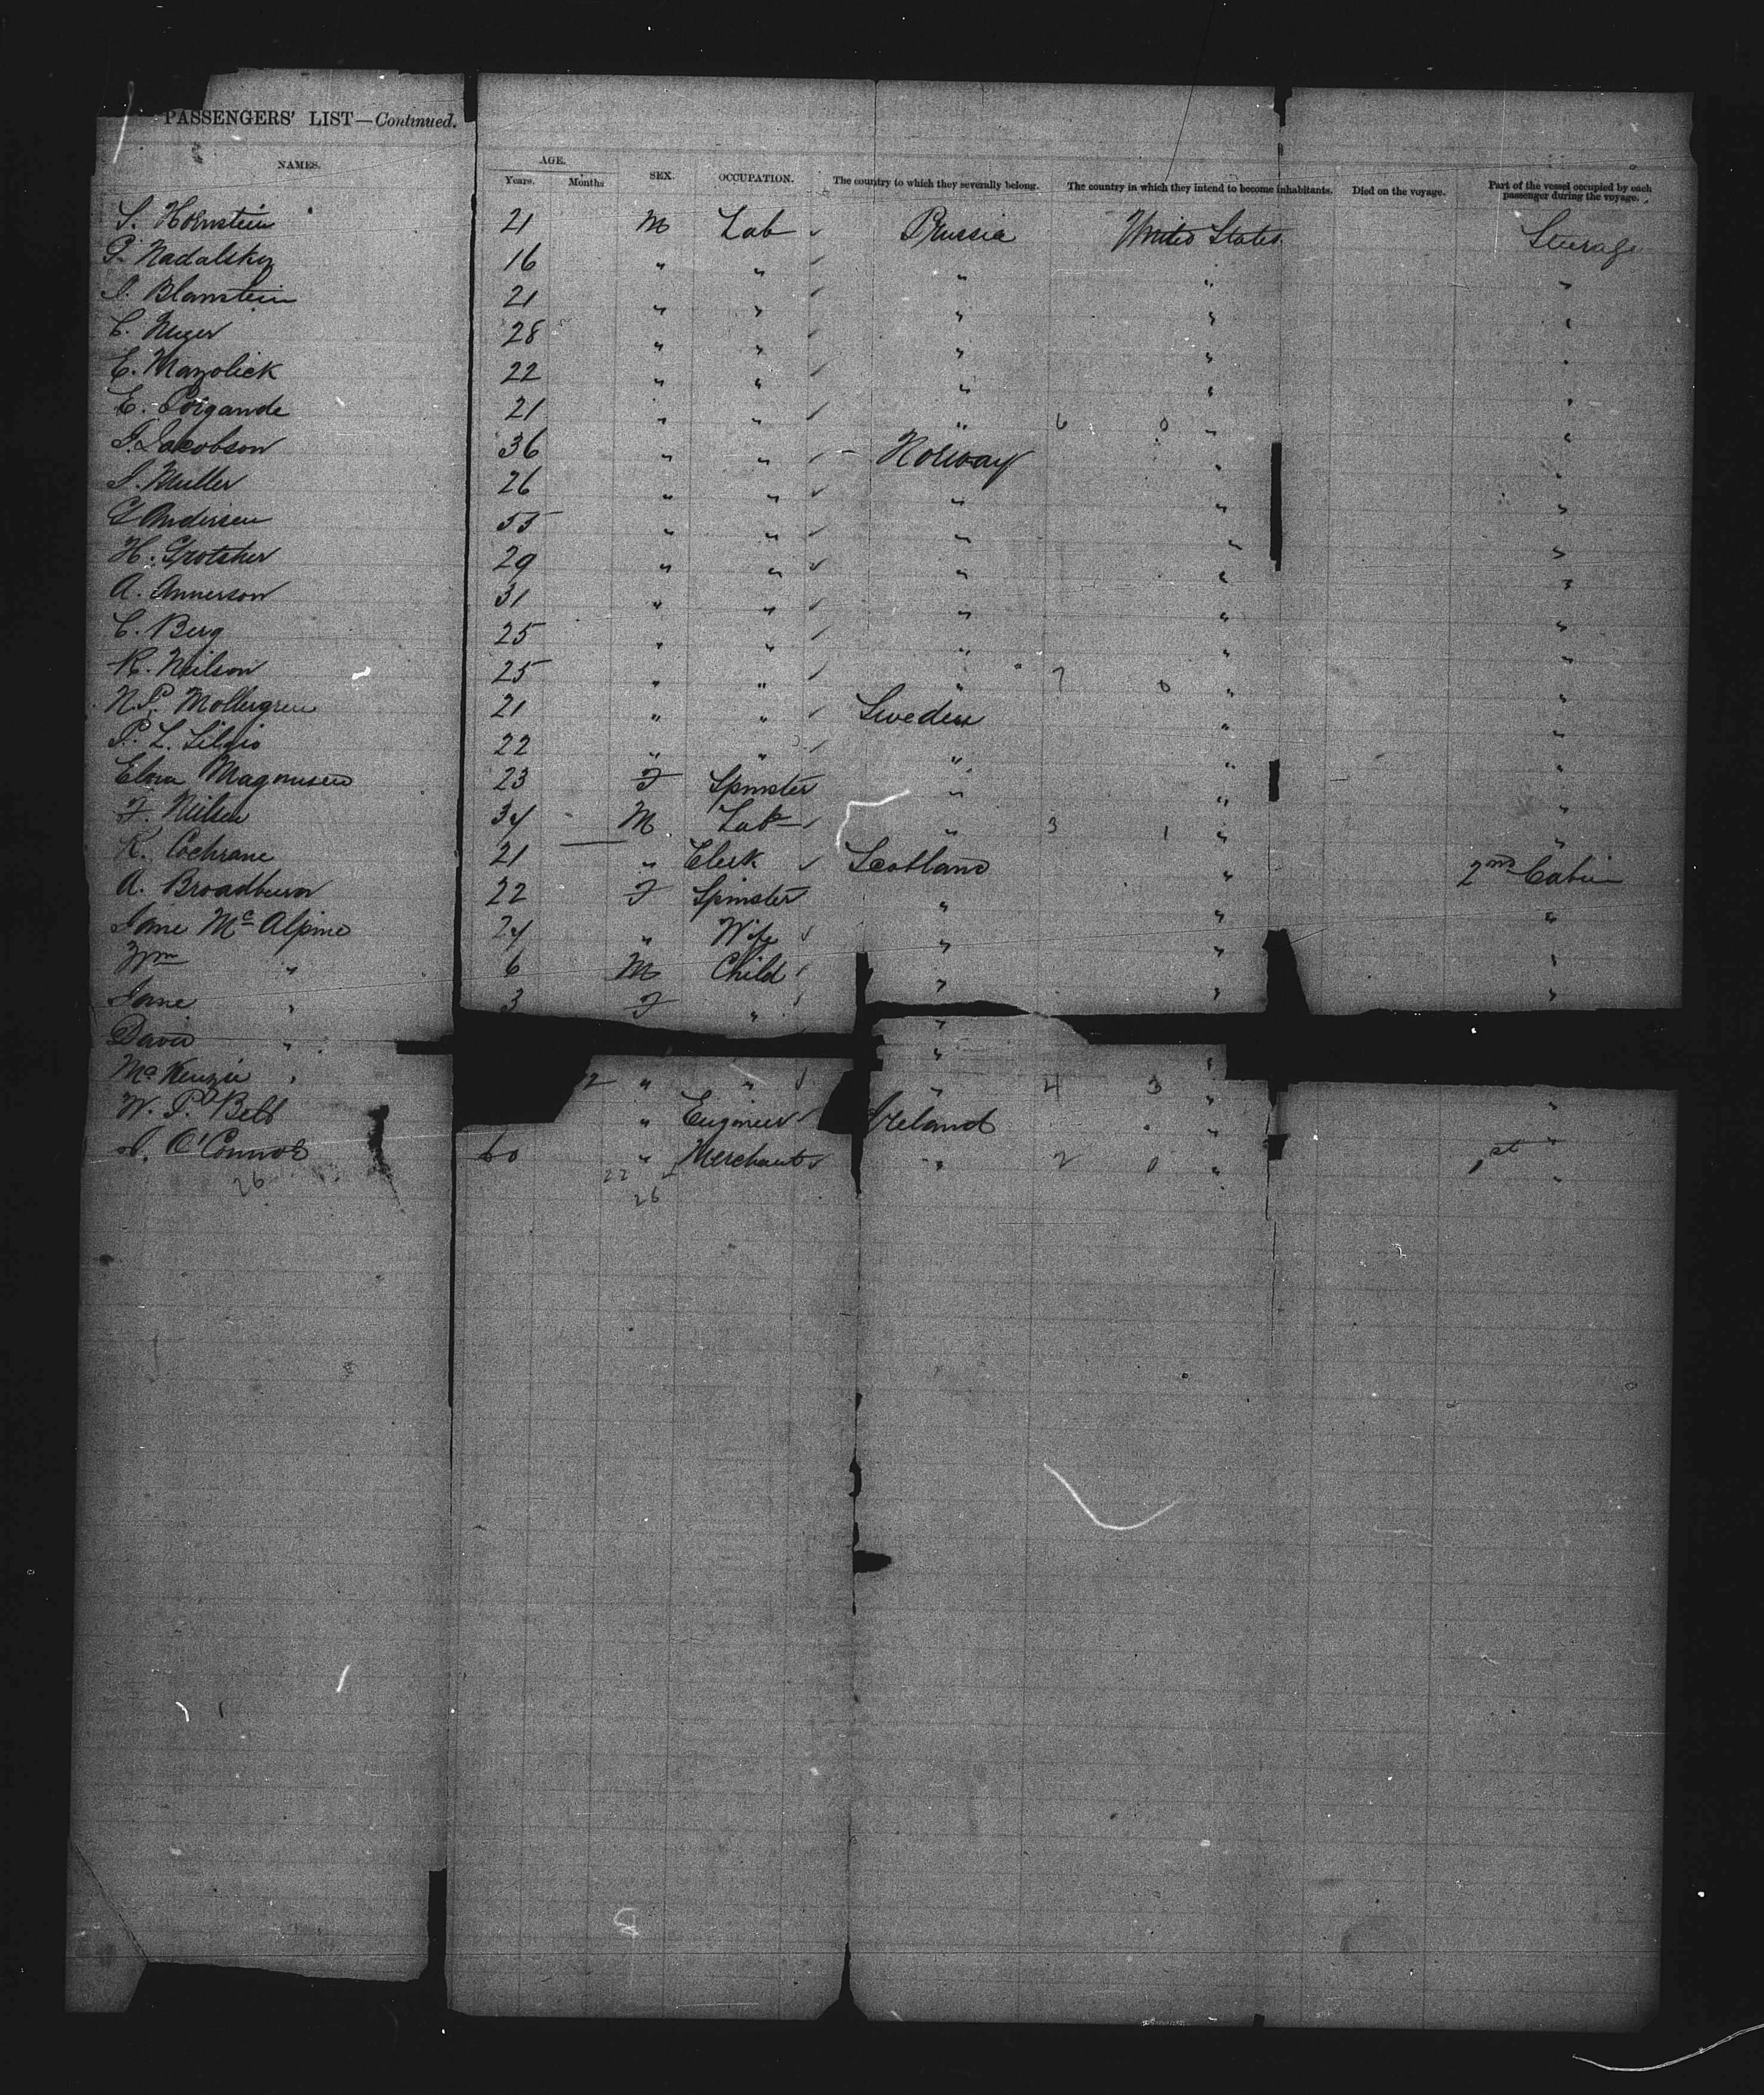 PASSENGERS' LIST—Continued.
NAMES. AGE. Years. Months SEX. OCCUPATION. The country to which they severally belong. The country in which they intend to become inhabitants. Died on the voyage. Part of the vessel occupied by each passenger during the voyage.
S. Hornstein 21 M Lab Prussia United States Steerage
P. Nadalsky 16 " " " " "
S. Blamstein 21 " " " " "
C. Meyer 28 " " " " "
E. Mazolick 22 " " " " "
E. Poigande 21 " " " 6 0 " "
J. Jacobson 36 " " Norway " "
S. Muller 26 " " " " "
G Andersen 55 " " " " "
H. Grotsher 29 " " " " "
A. Annerson 31 " " " " "
C. Berg 25 " " " " "
K. Neilson 25 " " " 7 0 " "
N.P. Mollergren 21 " " Sweden " "
P. L. 22 " " " " "
Magnusen 23 F Spinster " " "
F. Nielsen 34 M Lab " 3 1 " "
R. Cochrane 21 " Clerk Scotland " 2nd Cabin
A. Broadburn 22 F Spinster " " "
Jane McAlpine 24 " Wife " " "
Wm " 6 M Child " " "
Jane " 3 F " "
David " " "
McKenzie " 2 " " " 4 3 " "
W. P. Bell " Engineer Ireland " "
O'Connor 60 " Merchant " 2 0 " 1st "
26 22 26